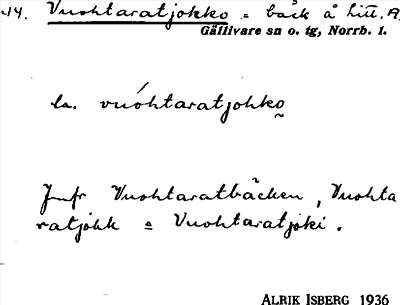 14. Vuohtaratjokko = bäck å hit. A.
Gällivare sn o. tg, Norrb. l.
la. vuóhtaratjohko
Jmfr Vuohtaratbäcken, Vuohta
ratjåkk o Vuohtaratjoki.
ALRIK ISBERG 1936